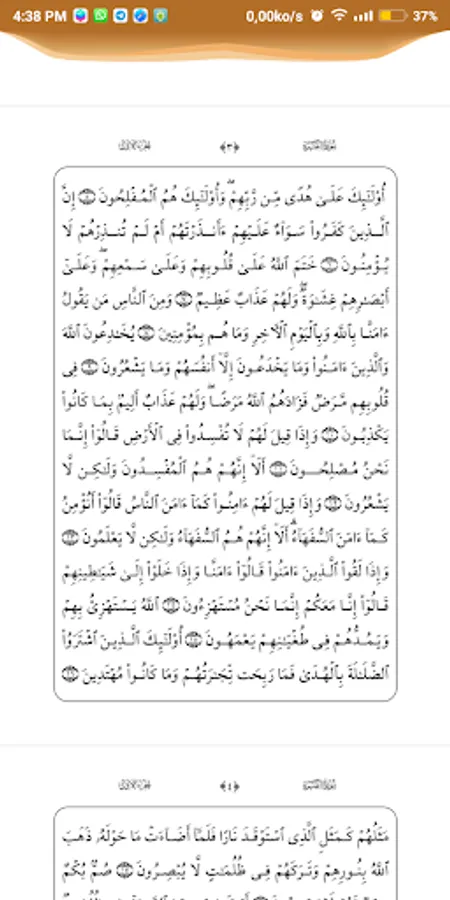 4:38 PM 0,00ko/s 37%
﴿٣﴾
أُوْلَٰٓئِكَ عَلَىٰ هُدٗى مِّن رَّبِّهِمۡۖ وَأُوْلَٰٓئِكَ هُمُ ٱلۡمُفۡلِحُونَ ۝ إِنَّ
ٱلَّذِينَ كَفَرُواْ سَوَآءٌ عَلَيۡهِمۡ ءَأَنذَرۡتَهُمۡ أَمۡ لَمۡ تُنذِرۡهُمۡ لَا
يُؤۡمِنُونَ ۝ خَتَمَ ٱللَّهُ عَلَىٰ قُلُوبِهِمۡ وَعَلَىٰ سَمۡعِهِمۡۖ وَعَلَىٰٓ
أَبۡصَٰرِهِمۡ غِشَٰوَةٞۖ وَلَهُمۡ عَذَابٌ عَظِيمٞ ۝ وَمِنَ ٱلنَّاسِ مَن يَقُولُ
ءَامَنَّا بِٱللَّهِ وَبِٱلۡيَوۡمِ ٱلۡأٓخِرِ وَمَا هُم بِمُؤۡمِنِينَ ۝ يُخَٰدِعُونَ ٱللَّهَ
وَٱلَّذِينَ ءَامَنُواْ وَمَا يَخۡدَعُونَ إِلَّآ أَنفُسَهُمۡ وَمَا يَشۡعُرُونَ ۝ فِي
قُلُوبِهِم مَّرَضٞ فَزَادَهُمُ ٱللَّهُ مَرَضٗاۖ وَلَهُمۡ عَذَابٌ أَلِيمُۢ بِمَا كَانُواْ
يَكۡذِبُونَ ۝ وَإِذَا قِيلَ لَهُمۡ لَا تُفۡسِدُواْ فِي ٱلۡأَرۡضِ قَالُوٓاْ إِنَّمَا
نَحۡنُ مُصۡلِحُونَ ۝ أَلَآ إِنَّهُمۡ هُمُ ٱلۡمُفۡسِدُونَ وَلَٰكِن لَّا
يَشۡعُرُونَ ۝ وَإِذَا قِيلَ لَهُمۡ ءَامِنُواْ كَمَآ ءَامَنَ ٱلنَّاسُ قَالُوٓاْ أَنُؤۡمِنُ
كَمَآ ءَامَنَ ٱلسُّفَهَآءُۗ أَلَآ إِنَّهُمۡ هُمُ ٱلسُّفَهَآءُ وَلَٰكِن لَّا يَعۡلَمُونَ ۝
وَإِذَا لَقُواْ ٱلَّذِينَ ءَامَنُواْ قَالُوٓاْ ءَامَنَّا وَإِذَا خَلَوۡاْ إِلَىٰ شَيَٰطِينِهِمۡ
قَالُوٓاْ إِنَّا مَعَكُمۡ إِنَّمَا نَحۡنُ مُسۡتَهۡزِءُونَ ۝ ٱللَّهُ يَسۡتَهۡزِئُ بِهِمۡ
وَيَمُدُّهُمۡ فِي طُغۡيَٰنِهِمۡ يَعۡمَهُونَ ۝ أُوْلَٰٓئِكَ ٱلَّذِينَ ٱشۡتَرَوُاْ
ٱلضَّلَٰلَةَ بِٱلۡهُدَىٰ فَمَا رَبِحَت تِّجَٰرَتُهُمۡ وَمَا كَانُواْ مُهۡتَدِينَ ۝
﴿٤﴾
مَثَلُهُمۡ كَمَثَلِ ٱلَّذِي ٱسۡتَوۡقَدَ نَارٗا فَلَمَّآ أَضَآءَتۡ مَا حَوۡلَهُۥ ذَهَبَ
ٱللَّهُ بِنُورِهِمۡ وَتَرَكَهُمۡ فِي ظُلُمَٰتٖ لَّا يُبۡصِرُونَ ۝ صُمُّۢ بُكۡمٌ